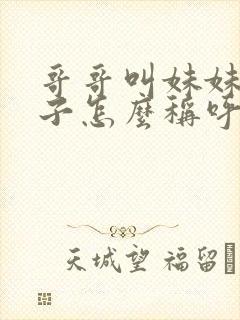 哥哥叫妹妹
子怎麼稱呼
天城望 福留